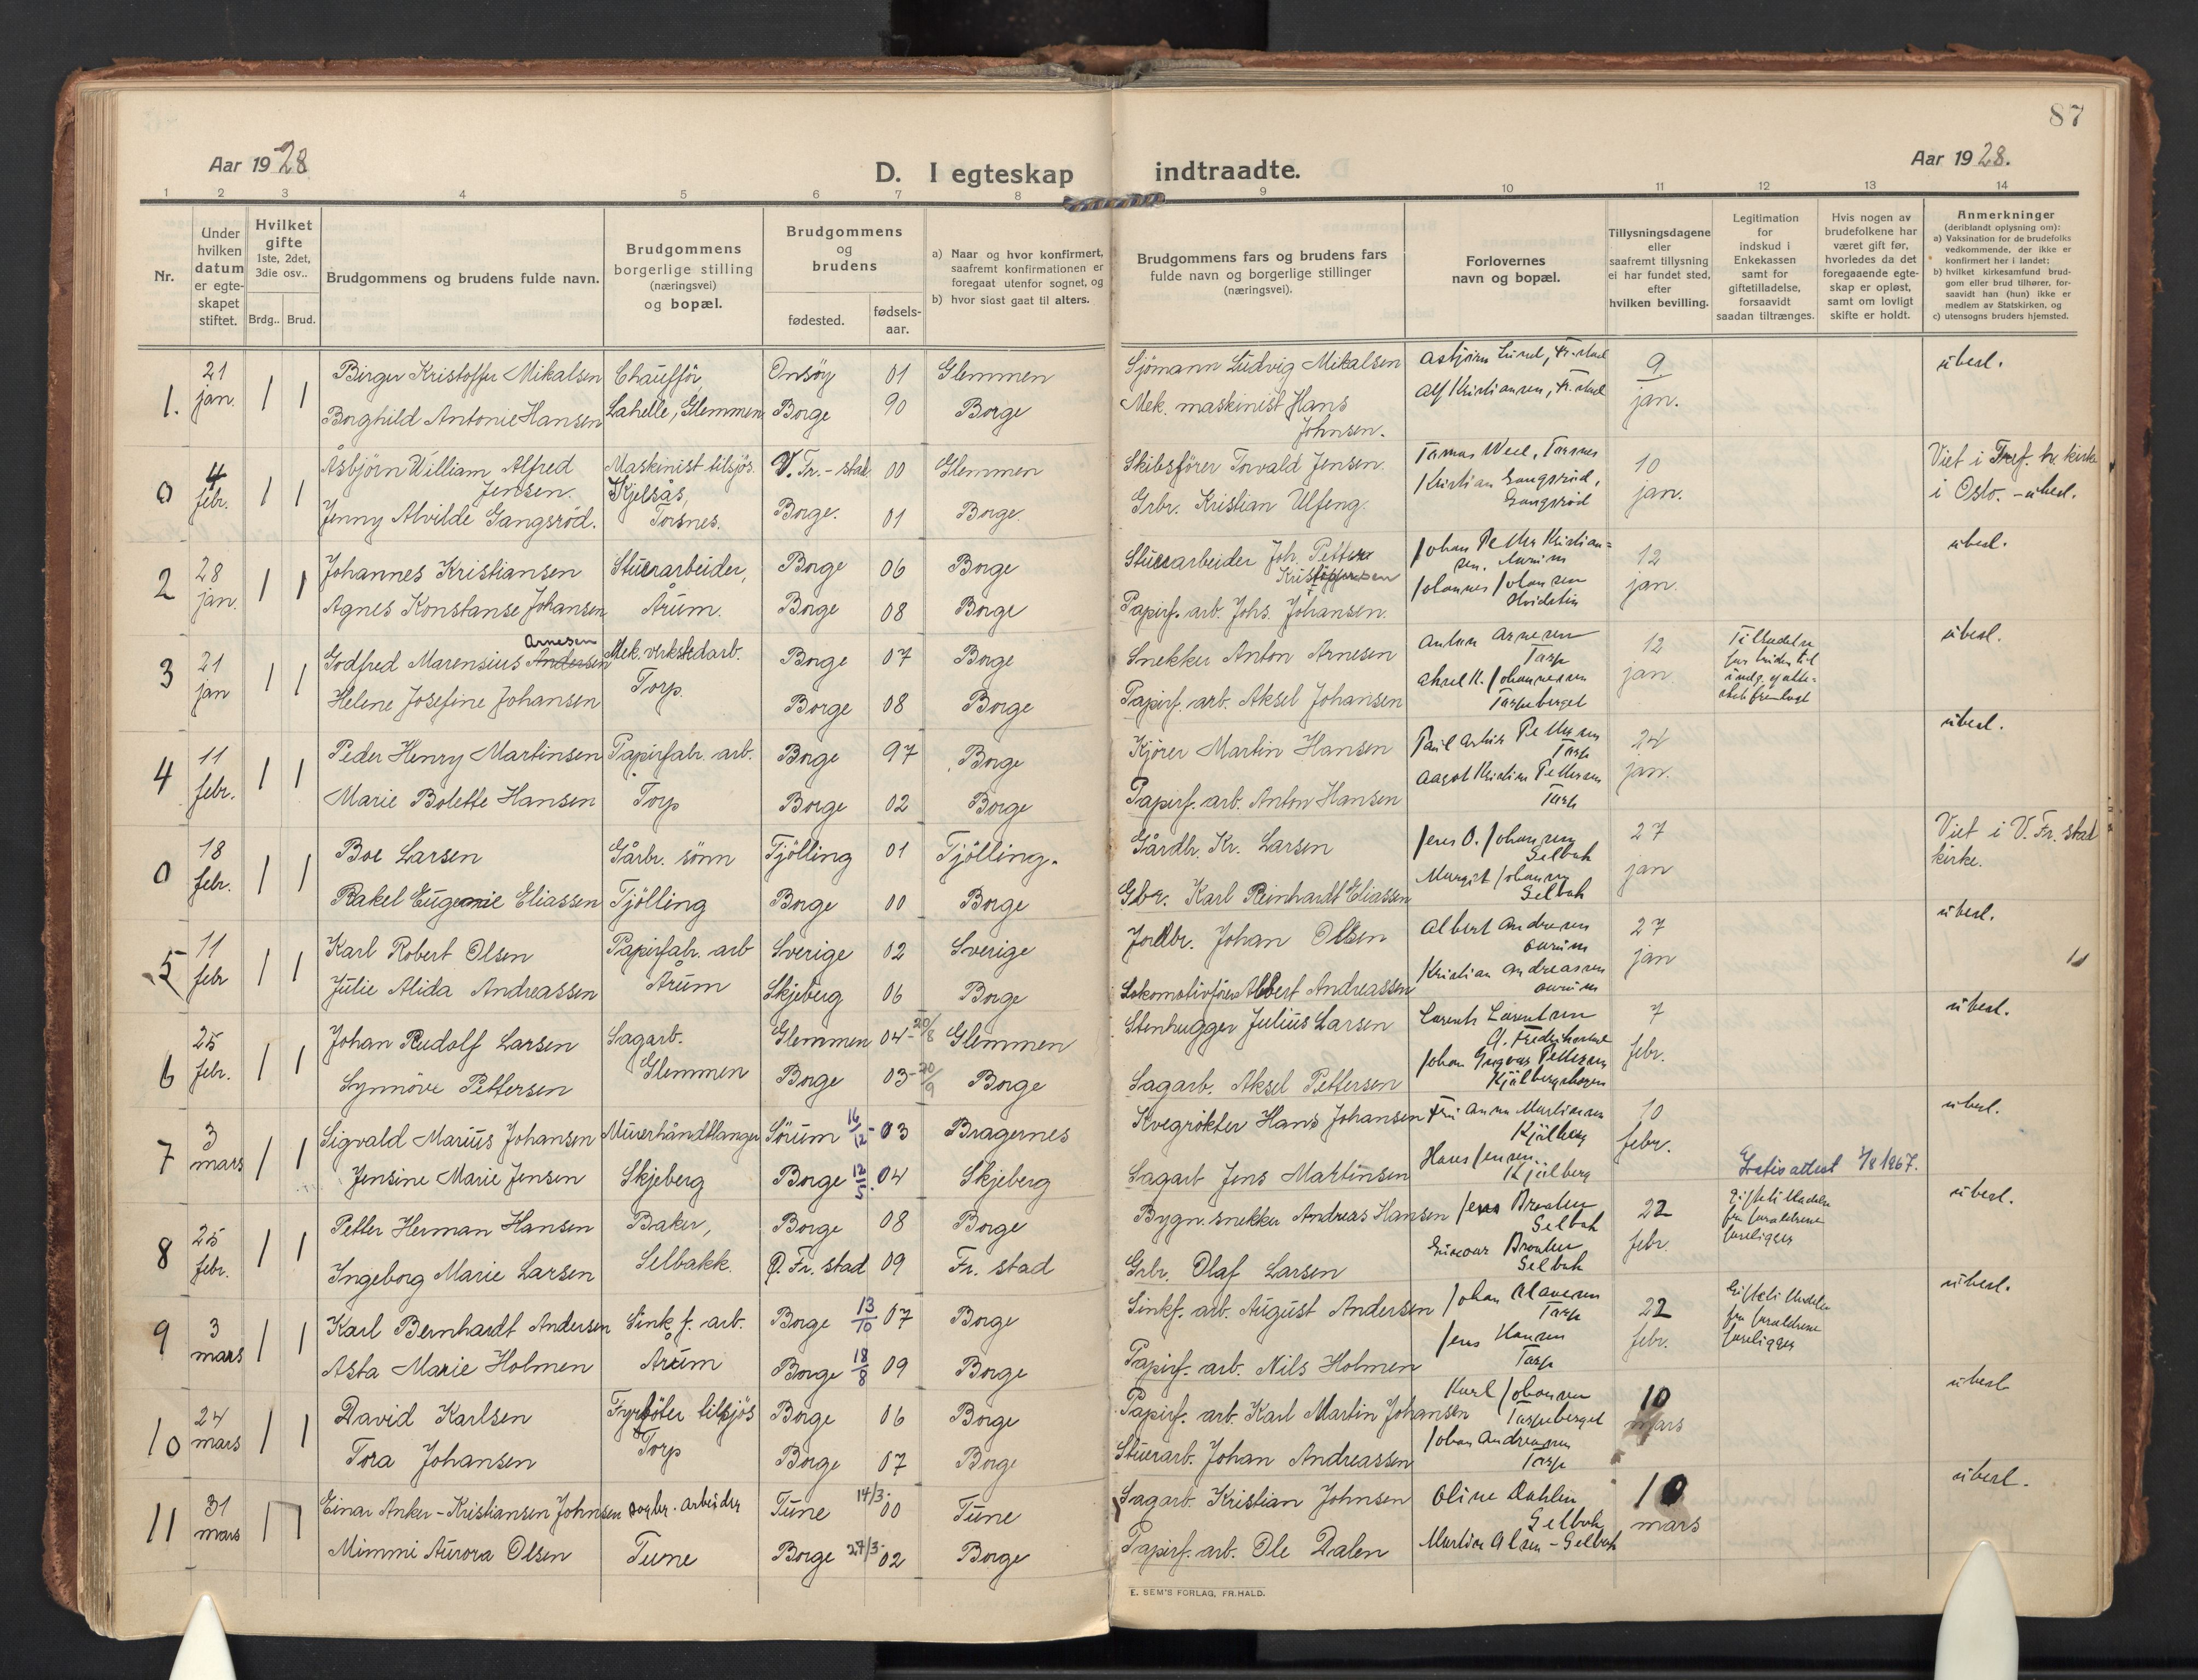 87
Aar 1928
D. I egteskap indtraadte.
Aar 1928.
1 2 3 4 5 6 7 8 9 10 11 12 13 14
Nr.
Under hvilken datum er egteskapet stiftet.
Hvilket gifte 1ste, 2det, 3die osv..
Brdg.. Brud.
Brudgommens og brudens fulde navn.
Brudgommens borgerlige stilling (næringsvei) og bopæl.
Brudgommens og brudens
fødested.
fødsels-aar.
a) Naar og hvor konfirmert, saafremt konfirmationen er foregaat utenfor sognet, og
b) hvor sidst gaat til alters.
Brudgommens fars og brudens fars fulde navn og borgerlige stillinger (næringsvei).
Forlovernes navn og bopæl.
Tillysningsdagene eller saafremt tillysning ei har fundet sted, efter hvilken bevilling.
Legitimation for indskud i Enkekassen samt for giftetilladelse, forsaavidt saadan tiltrænges.
Hvis nogen av brudefolkene har været gift før, hvorledes da det foregaaende egteskap er opløst, samt om lovligt skifte er holdt.
Anmerkninger (deriblandt oplysning om):
a) Vaksination for de brudefolks vedkommende, der ikke er konfirmert her i landet;
b) hvilket kirkesamfund brudgom eller brud tilhører, forsaavidt han (hun) ikke er medlem av Statskirken, og
c) utensogns bruders hjemsted.
1. 21 jan. 1 1 Birger Kristoffer Mikalsen Chaufför, Onsöy 01 Glemmen Sjömann Ludvig Mikalsen Asbjörn Lund, Fr.stad 9 jan. ubesl.
Borghild Antonie Hansen Lahelle, Glemmen Borge 90 Borge Mek. maskinist Hans Johnsen. Alf Kristiansen, Fr.stad
0 4 febr. 1 1 Åsbjörn William Alfred Jensen. Maskinist tilsjös. V. Fr.-stad 00 Glemmen Skibsförer Torvald Jensen. Torsnes 10 jan. Viet i Tref. h. kirke i Oslo. - ubesl.
Jenny Alvilde Gangsröd. Kjelsås, Torsnes. Borge. 01 Borge. Grbr. Kristian Ulfeng. Kristian Gangsröd, Gangsröd
2 28 jan. 1 1 Johannes Kristiansen Stuerarbeider, Borge 06 Borge Stuerarbeider Joh. Petter Kristoffersen Johan Petter Kristiansen. Aurim 12 jan. ubesl.
Agnes Konstanse Johansen Årum. Borge 08 Borge Papirf. arb. Johs. Johansen. Johannes Johansen
3 21 jan 1 1 Godfred Marensius Andersen Arnesen Mek. verkstedarb. Borge 07 Borge Snekker Anton Arnesen Anton Arnesen Torp 12 jan. Tilladelse ubesl.
Helene Josefine Johansen Torp. Borge 08 Borge Papirf. arb. Aksel Johansen Aksel K. Johannesen Torpeberget
4 11 febr. 1 1 Peder Henry Martinsen Papirfabr. arb. Borge 97 Borge Kjörer Martin Hansen Paul Artur Pettersen Torp 24 jan. ubesl.
Marie Bolette Hansen Torp Borge 02 Borge Papirf. arb. Anton Hansen Aagot Kristine Pettersen Torp
0 18 febr. 1 1 Boe Larsen Gårbr. sönn Tjölling 01 Tjölling. Gårdbr. Kr. Larsen Jens O. Johansen Selbak 27 jan Viet i V. Fr. stad kirke.
Rakel Eugenie Eliassen Tjölling Borge 00 Borge Gbr. Karl Reinhardt Eliassen Margit Johansen Selbak
5 11 febr 1 1 Karl Robert Olsen Papirfabr. arb Sverige 02 Sverige Jordbr. Johan Olsen Albert Andresen Aurim 27 jan ubesl.
Julie Alida Andreassen Årum Skjeberg 06 Borge Lokomotivförer Albert Andreassen Kristian Andreassen Aurim
6 25 febr. 1 1 Johan Rudolf Larsen Sagarb. Glemmen 04-20/8 Glemmen Stenhugger Julius Larsen Laurentsen 7 febr. ubesl.
Synnöve Pettersen Glemmen Borge 03-20/9 Borge Sagarb. Aksel Pettersen Johan Ingvar Pettersen
7 3 mars 1 1 Sigvald Marius Johansen Murerhåndtlanger Sörum 16/12-03 Bragernes Kvegrökter Hans Johansen Fru Anna Martinsen Kjölberg 10 febr. ubesl.
Jensine Marie Jensen Skjeberg Borge 12/5. 04 Skjeberg Sagarb Jens Martinsen Hans Jensen Kjölberg Gratisattest 1/8 1967.
8 25 febr. 1 1 Petter Herman Hansen Baker, Borge 08 Borge Bygn. snekker Andreas Hansen Jens Braaten Selbak 22 febr. Giftetilladelse fra forældrene foreligger ubesl.
Ingeborg Marie Larsen Selbakk. Ø. Fr. stad 09 Fr. stad Grbr. Olaf Larsen Braaten Selbak
9 3 mars 1 1 Karl Bernhardt Andersen Sinkf. arb. Borge 13/10 07 Borge Sinkf. arb. August Andersen Johan Olavesen Torp 22 febr. Giftetilladelse fra forældrene foreligger ubesl.
Asta Marie Holmen Årum Borge 18/8 09 Borge Papirf. arb. Nils Holmen Jens Hansen Torp
10 24 mars 1 1 David Karlsen Fyrböter tilsjös Borge 06 Borge Papirf. arb. Karl Martin Johansen Karl Johansen Torpeberget 10 mars ubesl
Tora Johansen Torp Borge 07 Borge Stuerarb. Johan Andreassen Johan Andreassen Torp
11 31 mars 1 1 Einar Anker-Kristiansen Johnsen arbeider Tune 14/3. 00 Tune Sagarb. Kristian Johnsen Oline Dahlen Selbak 10 mars ubesl.
Mimmi Aurora Olsen Tune Borge 27/3. 02 Borge Papirf. arb. Ole Dalen Martin Olsen - Selbak
E. SEM'S FORLAG, FR.HALD.